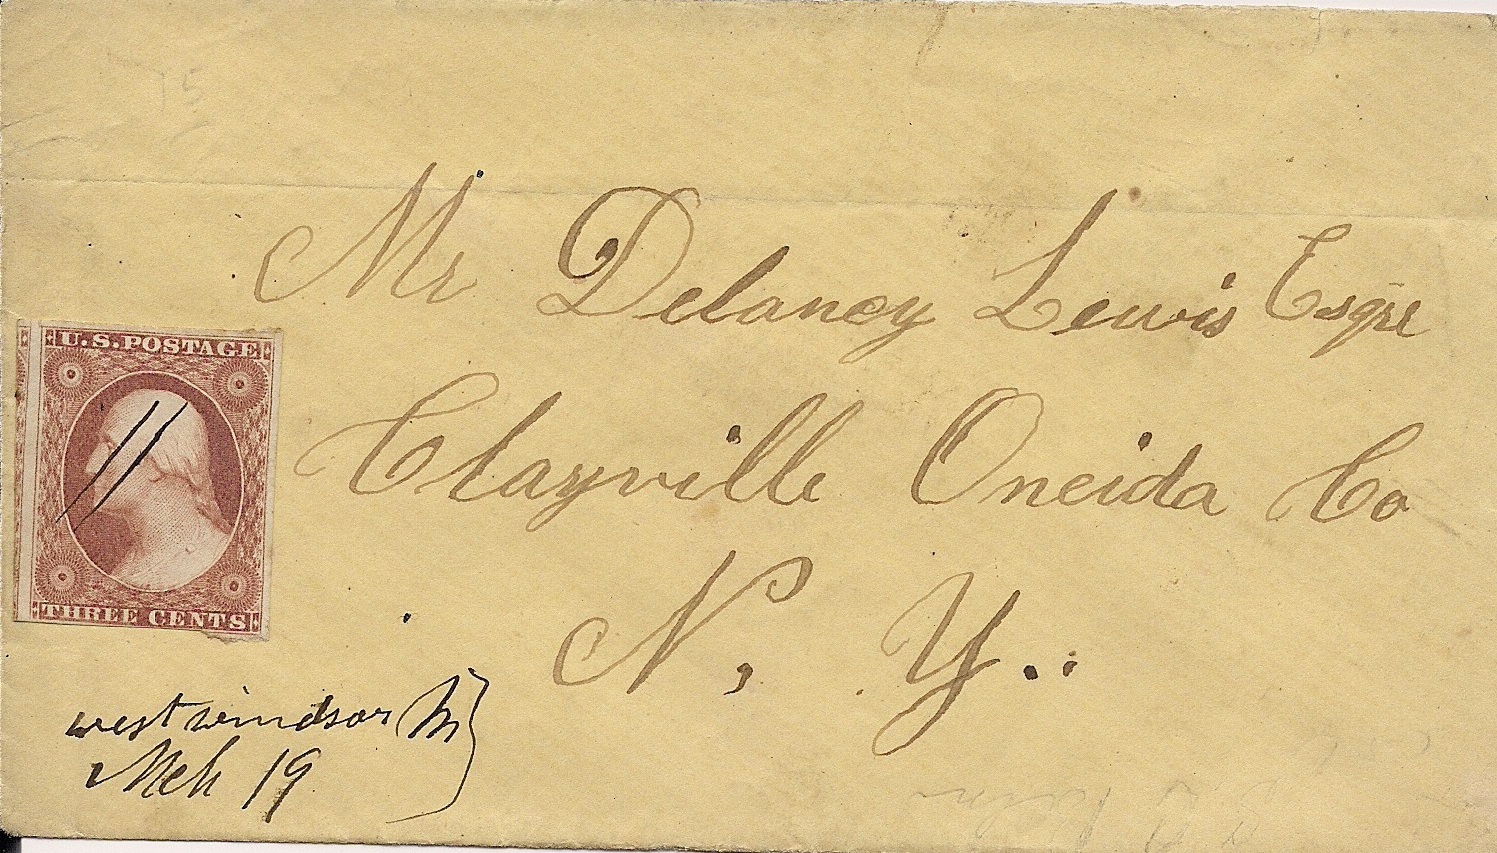 15
Mr Delancy Lewis Esqre
Clayville Oneida Co
N, Y.
U.S. POSTAGE
THREE CENTS
west windsor M
Mch 19